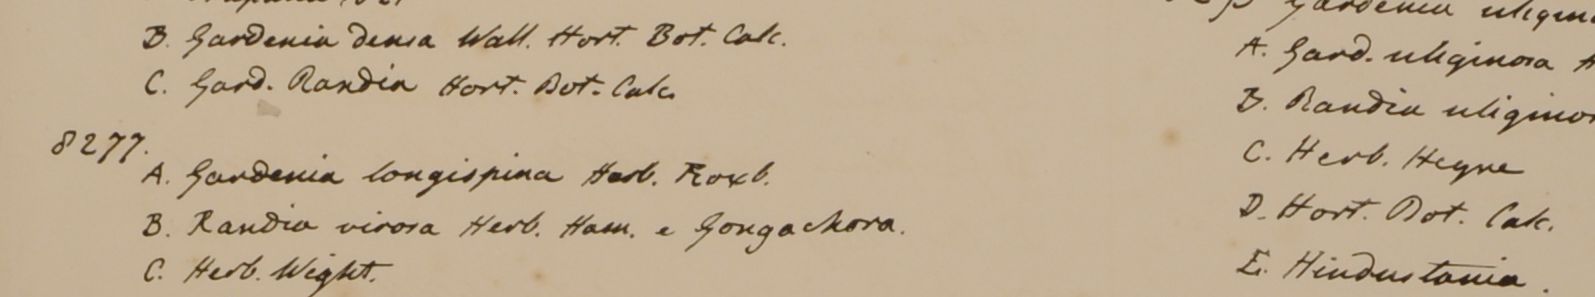 B. Gardenia densa Wall. Hort. Bot. Calc.
C. Gard. Randia Hort. Bot. Calc.
8277.
A. Gardenia longispina Herb. Roxb.
B. Randia virosa Herb. Ham. e Gongachora.
C. Herb. Wight.
Gardenia uligin
A. Gard. uliginosa
B. Randia uligino
C. Herb. Heyne
D. Hort. Bot. Calc.
E. Hindustania.